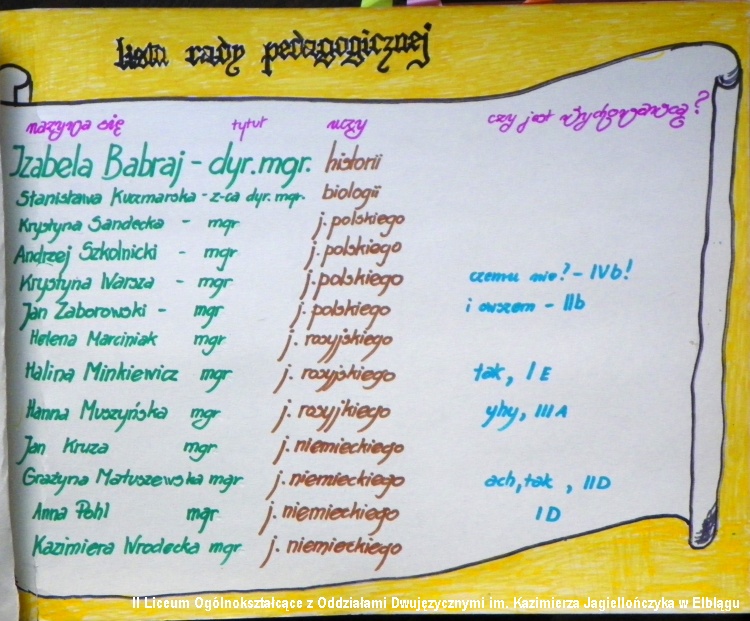 lista rady pedagogicznej
nazywa się tytuł uczy czy jest wychowawcą?
Izabela Babraj - dyr. mgr. historii
Stanisława Kuczmarska - z-ca dyr. mgr. biologii
Krystyna Sandecka - mgr j. polskiego
Andrzej Szkolnicki - mgr j. polskiego
Krystyna Warsza - mgr j. polskiego czemu nie? - IVb!
Jan Zaborowski - mgr j. polskiego i owszem - IIb
Helena Marciniak mgr j. rosyjskiego
Halina Minkiewicz mgr j. rosyjskiego tak, I E
Hanna Muszyńska mgr j. rosyjkiego yhy, III A
Jan Kruza mgr j. niemieckiego
Grażyna Matuszewska mgr j. niemieckiego ach, tak, II D
Anna Pohl mgr j. niemieckiego I D
Kazimiera Wrodecka mgr j. niemieckiego
II Liceum Ogólnokształcące z Oddziałami Dwujęzycznymi im. Kazimierza Jagiellończyka w Elblągu